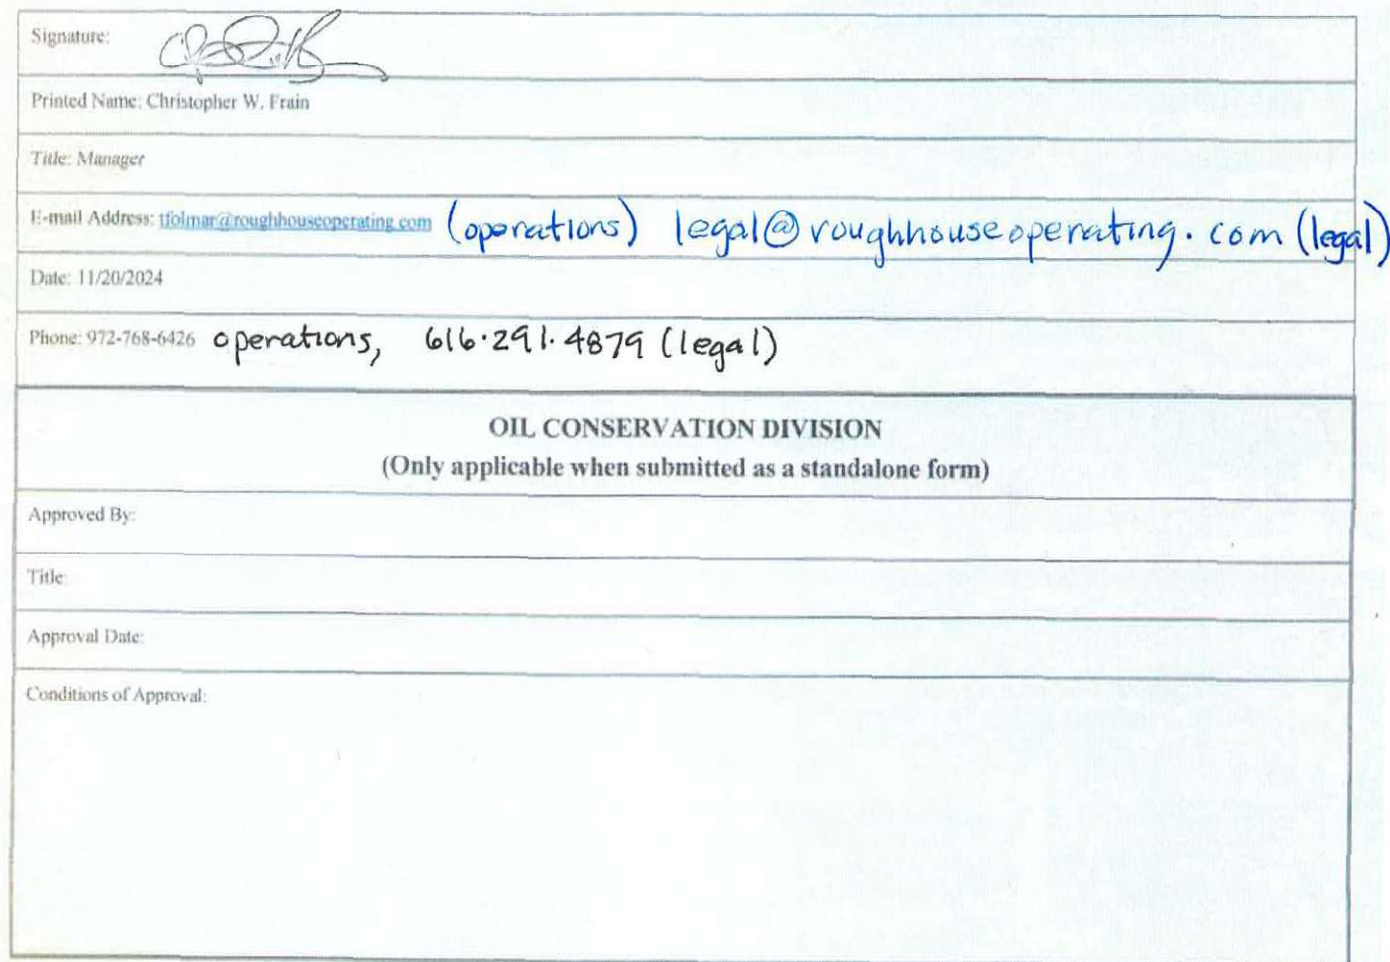 Signature:
Printed Name: Christopher W. Frain
Title: Manager
E-mail Address: tfolmar@roughhouseoperating.com (operations) legal@roughhouseoperating.com (legal)
Date: 11/20/2024
Phone: 972-768-6426 operations, 616.291.4879 (legal)
OIL CONSERVATION DIVISION
(Only applicable when submitted as a standalone form)
Approved By:
Title:
Approval Date:
Conditions of Approval: